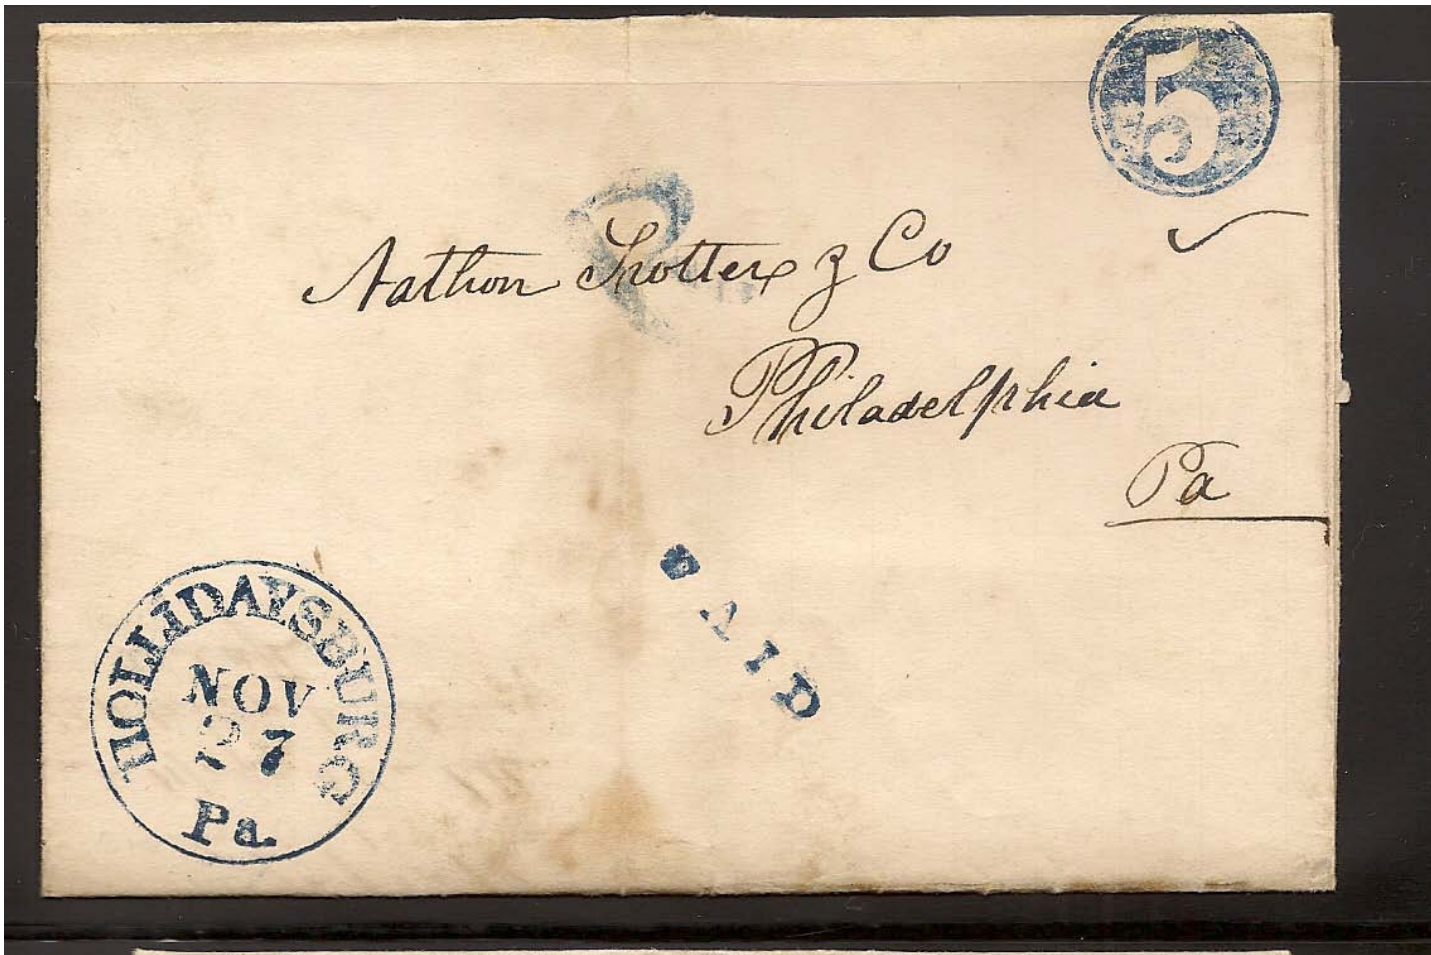 5
Nathan Trotter & Co
Philadelphia
Pa
PAID
HOLLIDAYSBURG
NOV
27
Pa.